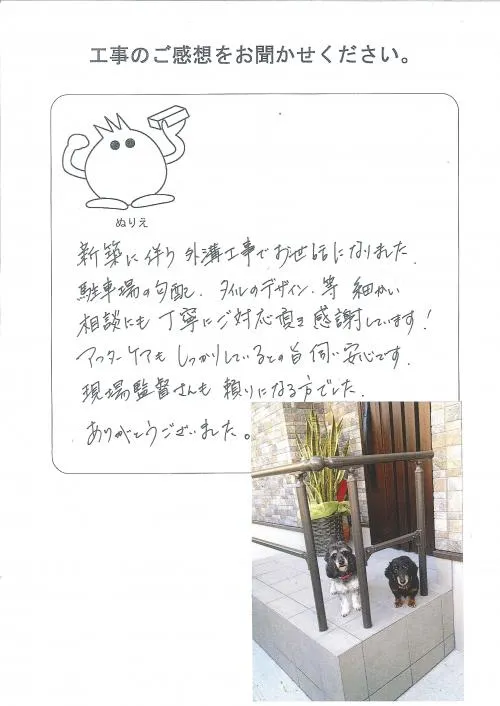 工事のご感想をお聞かせください。
ぬりえ
新築に伴う外溝工事でお世話になりました。
駐車場の勾配、タイルのデザイン等細かい
相談にも丁寧にご対応頂き感謝しています!
アフターケアもしっかりしているとの旨伺い安心です。
現場監督さんも頼りになる方でした。
ありがとうございました。